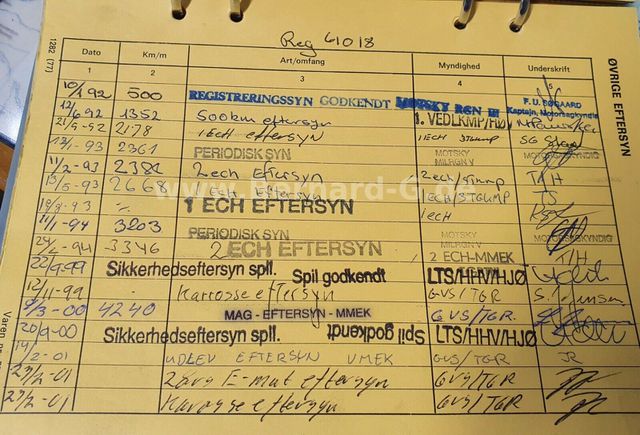 Reg 61018
1282 (77)
ØVRIGE EFTERSYN
Dato Km/m Art/omfang Myndighed Underskrift
1 2 3 4 5
10/1 92 500 REGISTRERINGSSYN GODKENDT MOTSKY RGN III F. U. BØGAARD
Kaptajn, Motorsagkyndig
12/6 92 1352 500km eftersyn 1. VEDLKMP/HØV
21/9-92 2178 1ECH eftersyn 1ECH
-93 2361 PERIODISK SYN MOTSKY
MILRGN V MOTORSAGKYNDIG
11/2-93 2382 2ech Eftersyn 2ech/
15/6-93 2668 1ECH Eftersyn 1ECH/
-93 1 ECH EFTERSYN 1ech
11/1-94 3203 PERIODISK SYN MOTSKY
MILRGN V MOTORSAGKYNDIG
-94 3346 2 ECH EFTERSYN 2 ECH-MMEK
22/9-99 Sikkerhedseftersyn spll. Spil godkendt LTS/HHV/HJØ
12/11-99 Karosse eftersyn GVS/TGR
9/3-00 4240 MAG - EFTERSYN - MMEK GVS/TGR.
20/9-00 Sikkerhedseftersyn spll. Spil godkendt LTS/HHV/HJØ
19/2-01 UDLEV EFTERSYN VMEK GVS/TGR JR
27/2-01 eftersyn GVS/TGR
27/2-01 Karosse eftersyn GVS/TGR
Varen nr.